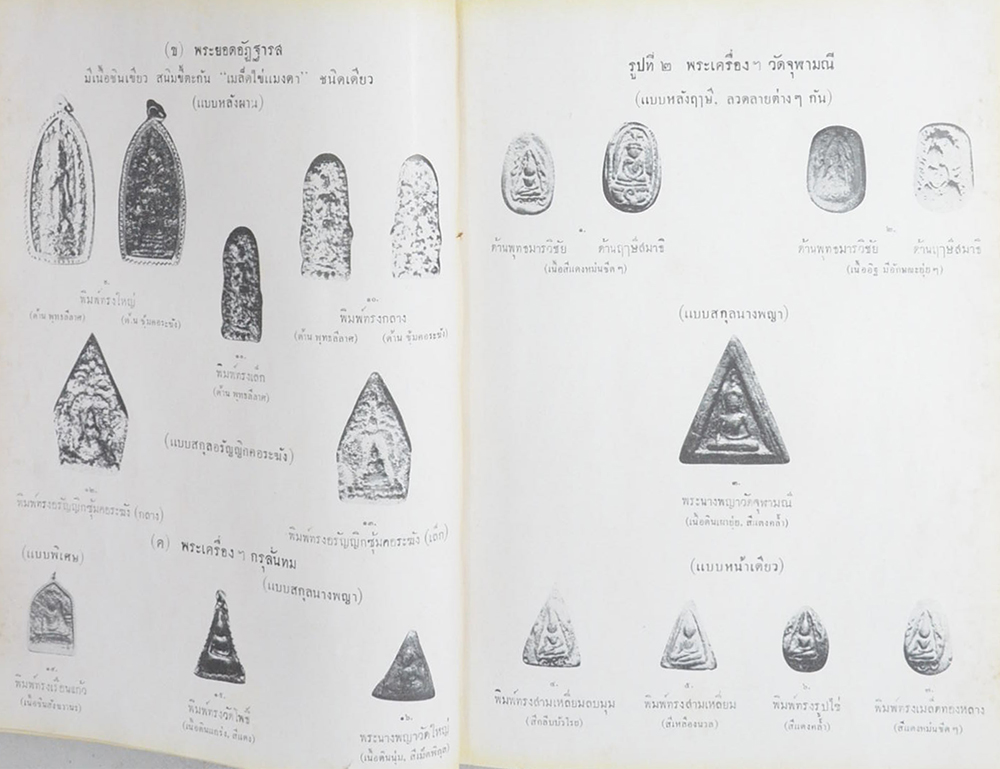 (ข) พระยอดอัฏฐารส
มีเนื้อชินเขียว สนิมขี้ตะกัน "เมล็ดไข่แมงดา" ชนิดเดียว
(แบบหลังผาน)
๙.
พิมพ์ทรงใหญ่
(ด้าน พุทธลีลาศ) (ด้าน ซุ้มคอระฆัง)
๑๐.
พิมพ์ทรงกลาง
(ด้าน พุทธลีลาศ) (ด้าน ซุ้มคอระฆัง)
๑๑.
พิมพ์ทรงเล็ก
(ด้าน พุทธลีลาศ)
(แบบสกุลอรัญญิกคอระฆัง)
๑๒.
พิมพ์ทรงอรัญญิกซุ้มคอระฆัง (กลาง)
๑๓.
พิมพ์ทรงอรัญญิกซุ้มคอระฆัง (เล็ก)
(ค) พระเครื่อง ฯ กรุลั่นทม
(แบบพิเศษ)
(แบบสกุลนางพญา)
๑๔.
พิมพ์ทรงเรือนแก้ว
๑๕.
พิมพ์ทรงวัดโพธิ์
(เนื้อดินแกร่ง, สีแดง)
๑๖.
พระนางพญาวัดใหญ่
(เนื้อดินนุ่ม, สีเม็ดพิกุล)
รูปที่ ๒ พระเครื่อง ฯ วัดจุฬามณี
(แบบหลังฤๅษี, ลวดลายต่าง ๆ กัน)
๑.
ด้านพุทธมารวิชัย ด้านฤๅษีสมาธิ
(เนื้อสีแดงหม่นซีด ๆ)
๒.
ด้านพุทธมารวิชัย ด้านฤๅษีสมาธิ
(เนื้ออิฐ มีลักษณะยุ่ย ๆ)
(แบบสกุลนางพญา)
๓.
พระนางพญาวัดจุฬามณี
(เนื้อดินเผายุ่ย, สีแดงคล้ำ)
(แบบหน้าเดียว)
๔.
พิมพ์ทรงสามเหลี่ยมลบมุม
(สีกลีบบัวโรย)
๕.
พิมพ์ทรงสามเหลี่ยม
(สีเหลืองนวล)
๖.
พิมพ์ทรงรูปไข่
(สีแดงคล้ำ)
๗.
พิมพ์ทรงเมล็ดทองหลาง
(สีแดงหม่นซีด ๆ)